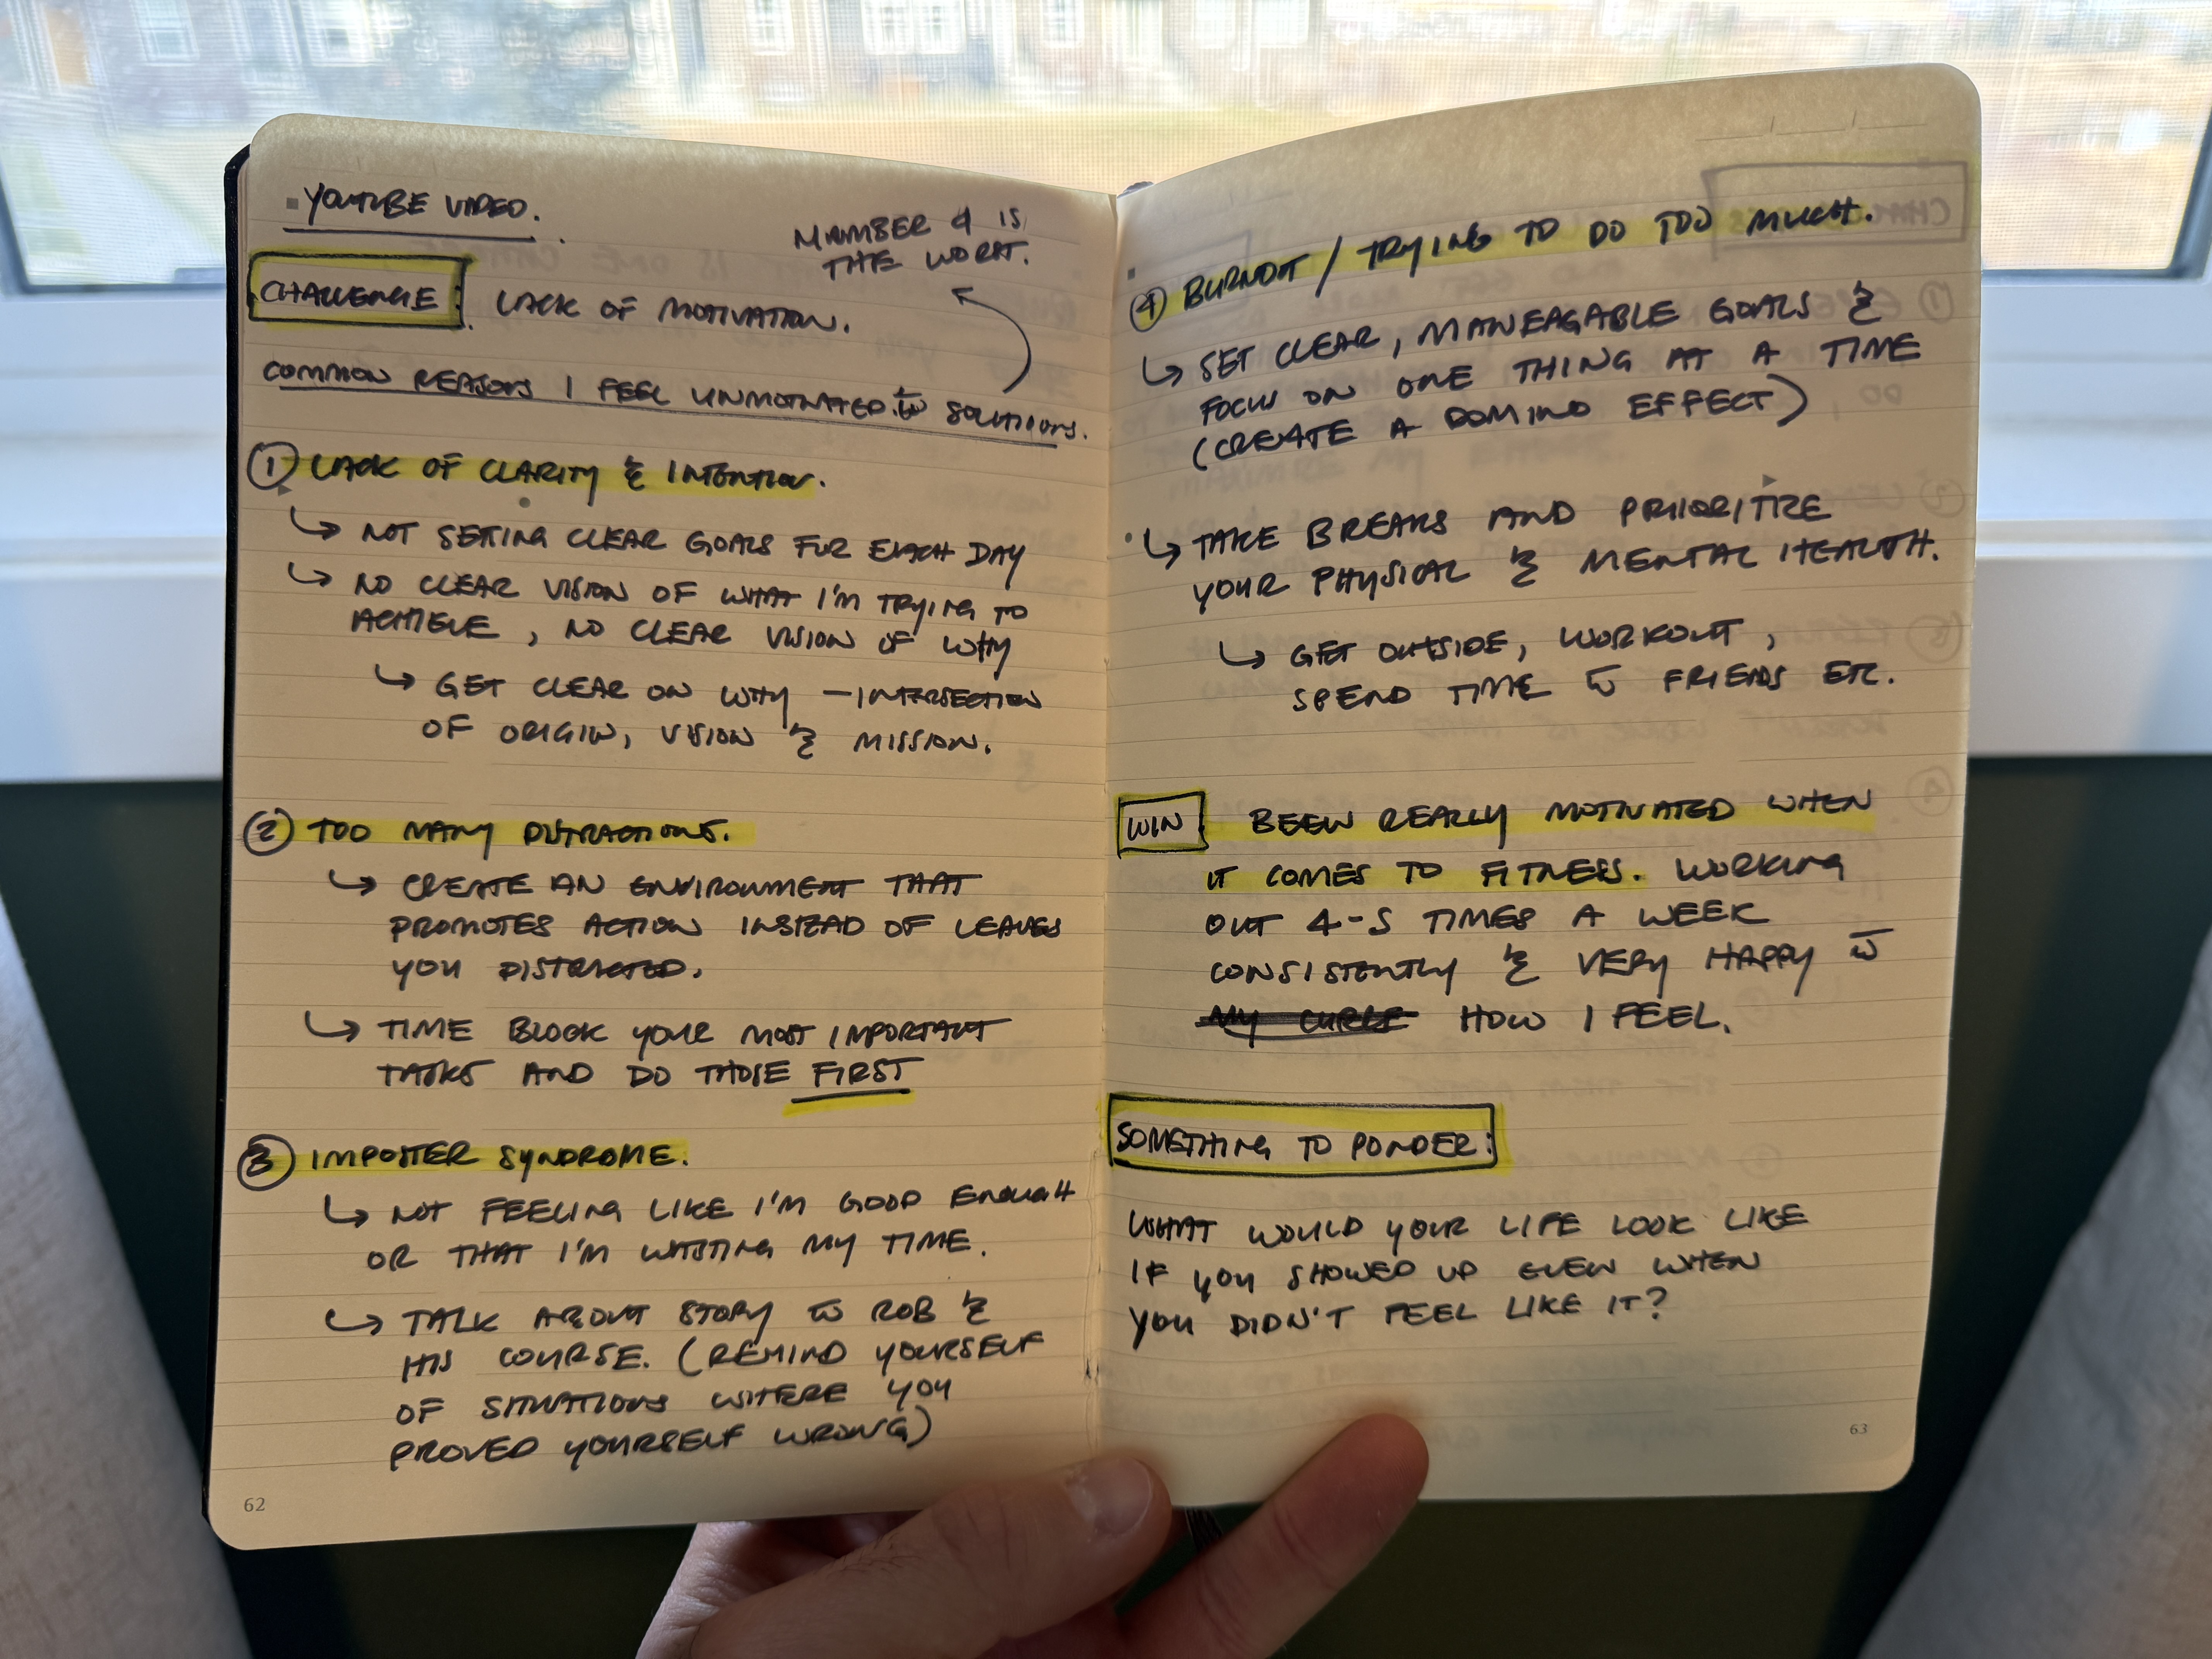 YOUTUBE VIDEO.
NUMBER 4 IS
THE WORST.
CHALLENGE: LACK OF MOTIVATION.
COMMON REASONS I FEEL UNMOTIVATED w̄ SOLUTIONS.
① LACK OF CLARITY & INTENTION.
↳ NOT SETTING CLEAR GOALS FOR EACH DAY
↳ NO CLEAR VISION OF WHAT I'M TRYING TO
ACHIEVE, NO CLEAR VISION OF WHY
↳ GET CLEAR ON WHY – INTERSECTION
OF ORIGIN, VISION & MISSION.
② TOO MANY DISTRACTIONS.
↳ CREATE AN ENVIRONMENT THAT
PROMOTES ACTION INSTEAD OF LEAVES
YOU DISTRACTED.
↳ TIME BLOCK YOUR MOST IMPORTANT
TASKS AND DO THOSE FIRST
③ IMPOSTER SYNDROME.
↳ NOT FEELING LIKE I'M GOOD ENOUGH
OR THAT I'M WASTING MY TIME.
↳ TALK ABOUT STORY w̄ ROB &
HIS COURSE. (REMIND YOURSELF
OF SITUATIONS WHERE YOU
PROVED YOURSELF WRONG)
62
④ BURNOUT / TRYING TO DO TOO MUCH.
↳ SET CLEAR, MANEAGABLE GOALS &
FOCUS ON ONE THING AT A TIME
(CREATE A DOMINO EFFECT)
↳ TAKE BREAKS AND PRIORITIZE
YOUR PHYSICAL & MENTAL HEALTH.
↳ GET OUTSIDE, WORKOUT,
SPEND TIME w̄ FRIENDS ETC.
WIN: BEEN REALLY MOTIVATED WHEN
IT COMES TO FITNESS. WORKING
OUT 4-5 TIMES A WEEK
CONSISTENTLY & VERY HAPPY w̄
HOW I FEEL.
SOMETHING TO PONDER:
WHAT WOULD YOUR LIFE LOOK LIKE
IF YOU SHOWED UP EVEN WHEN
YOU DIDN'T FEEL LIKE IT?
63